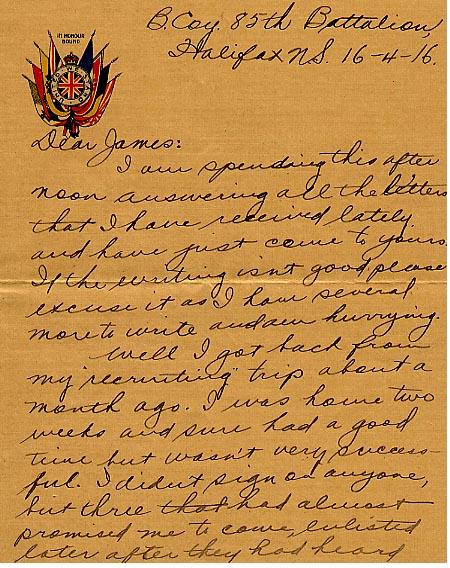 B. Coy. 85th Battalion,
Halifax N.S. 16-4-16.
IN HONOUR
BOUND
Dear James:
I am spending this after
noon answering all the letters
that I have received lately
and have just come to yours.
If the writing isnt good please
excuse it as I have several
more to write and am hurrying.
Well I got back from
my "recruiting" trip about a
month ago. I was home two
weeks and sure had a good
time but wasn't very success-
ful. I didn't sign on anyone,
but three that had almost
promised me to come, enlisted
later after they had heard